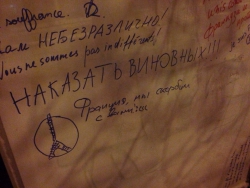 souffrance.
Нам НЕБЕЗРАЗЛИЧНО!
Nous ne sommes pas indifférents!
НАКАЗАТЬ ВИНОВНЫХ!!!
Франция, мы скорбим
с Вами